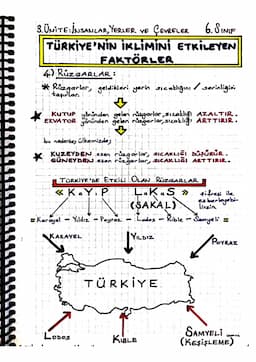 3. ÜNİTE: İNSANLAR, YERLER VE ÇEVRELER 6. SINIF
TÜRKİYE'NİN İKLİMİNİ ETKİLEYEN
FAKTÖRLER
4) RÜZGARLAR:
* Rüzgarlar, geldikleri yerin sıcaklığını / serinliğini
taşırlar.
★ KUTUP yönünden gelen rüzgarlar, sıcaklığı AZALTIR.
EKVATOR yönünden gelen rüzgarlar, sıcaklığı ARTTIRIR.
bu nedenle; ülkemizde;
★ KUZEYDEN esen rüzgarlar, SICAKLIĞI DÜŞÜRÜR.
GÜNEYDEN esen rüzgarlar, SICAKLIĞI ARTTIRIR.
TÜRKİYE'DE ETKİLİ OLAN RÜZGARLAR
« K.Y.P L.K.S » şifresi ile
(ŞAKAL) ezberleyebi-
lirsin
= Karayel - Yıldız - Poyraz - Lodos - Kıble - Samyeli =
KARAYEL YILDIZ POYRAZ
TÜRKİYE
LODOS KIBLE SAMYELİ
(KEŞİŞLEME)